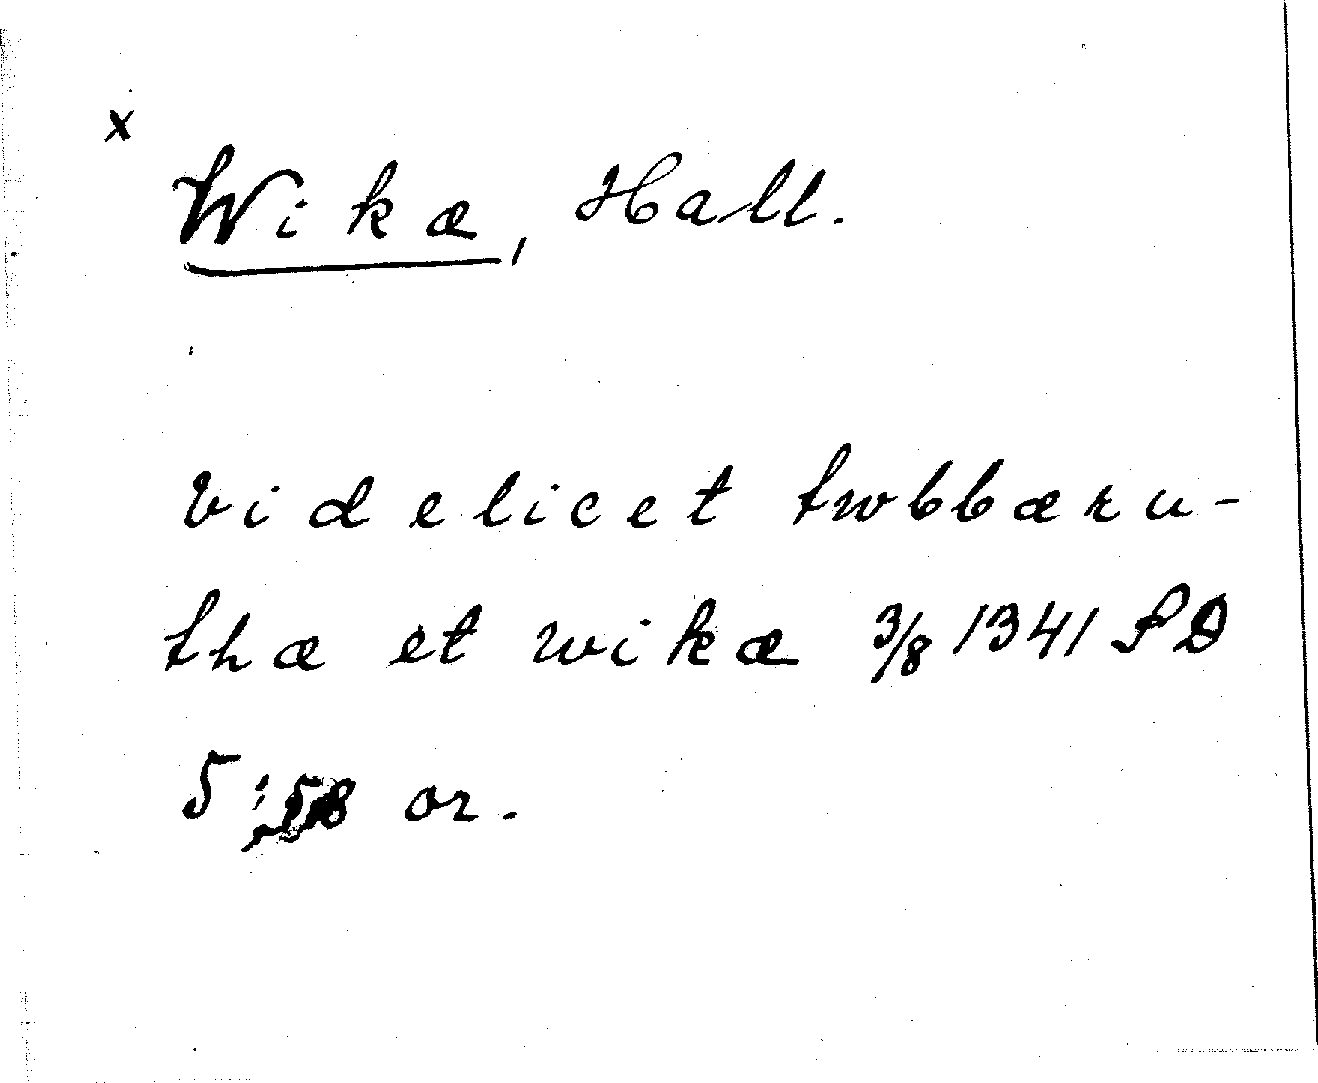 x
Wikæ, Hall.
videlicet twbbæru-
thæ et wikæ 3/8 1341 SD
5:58 or.